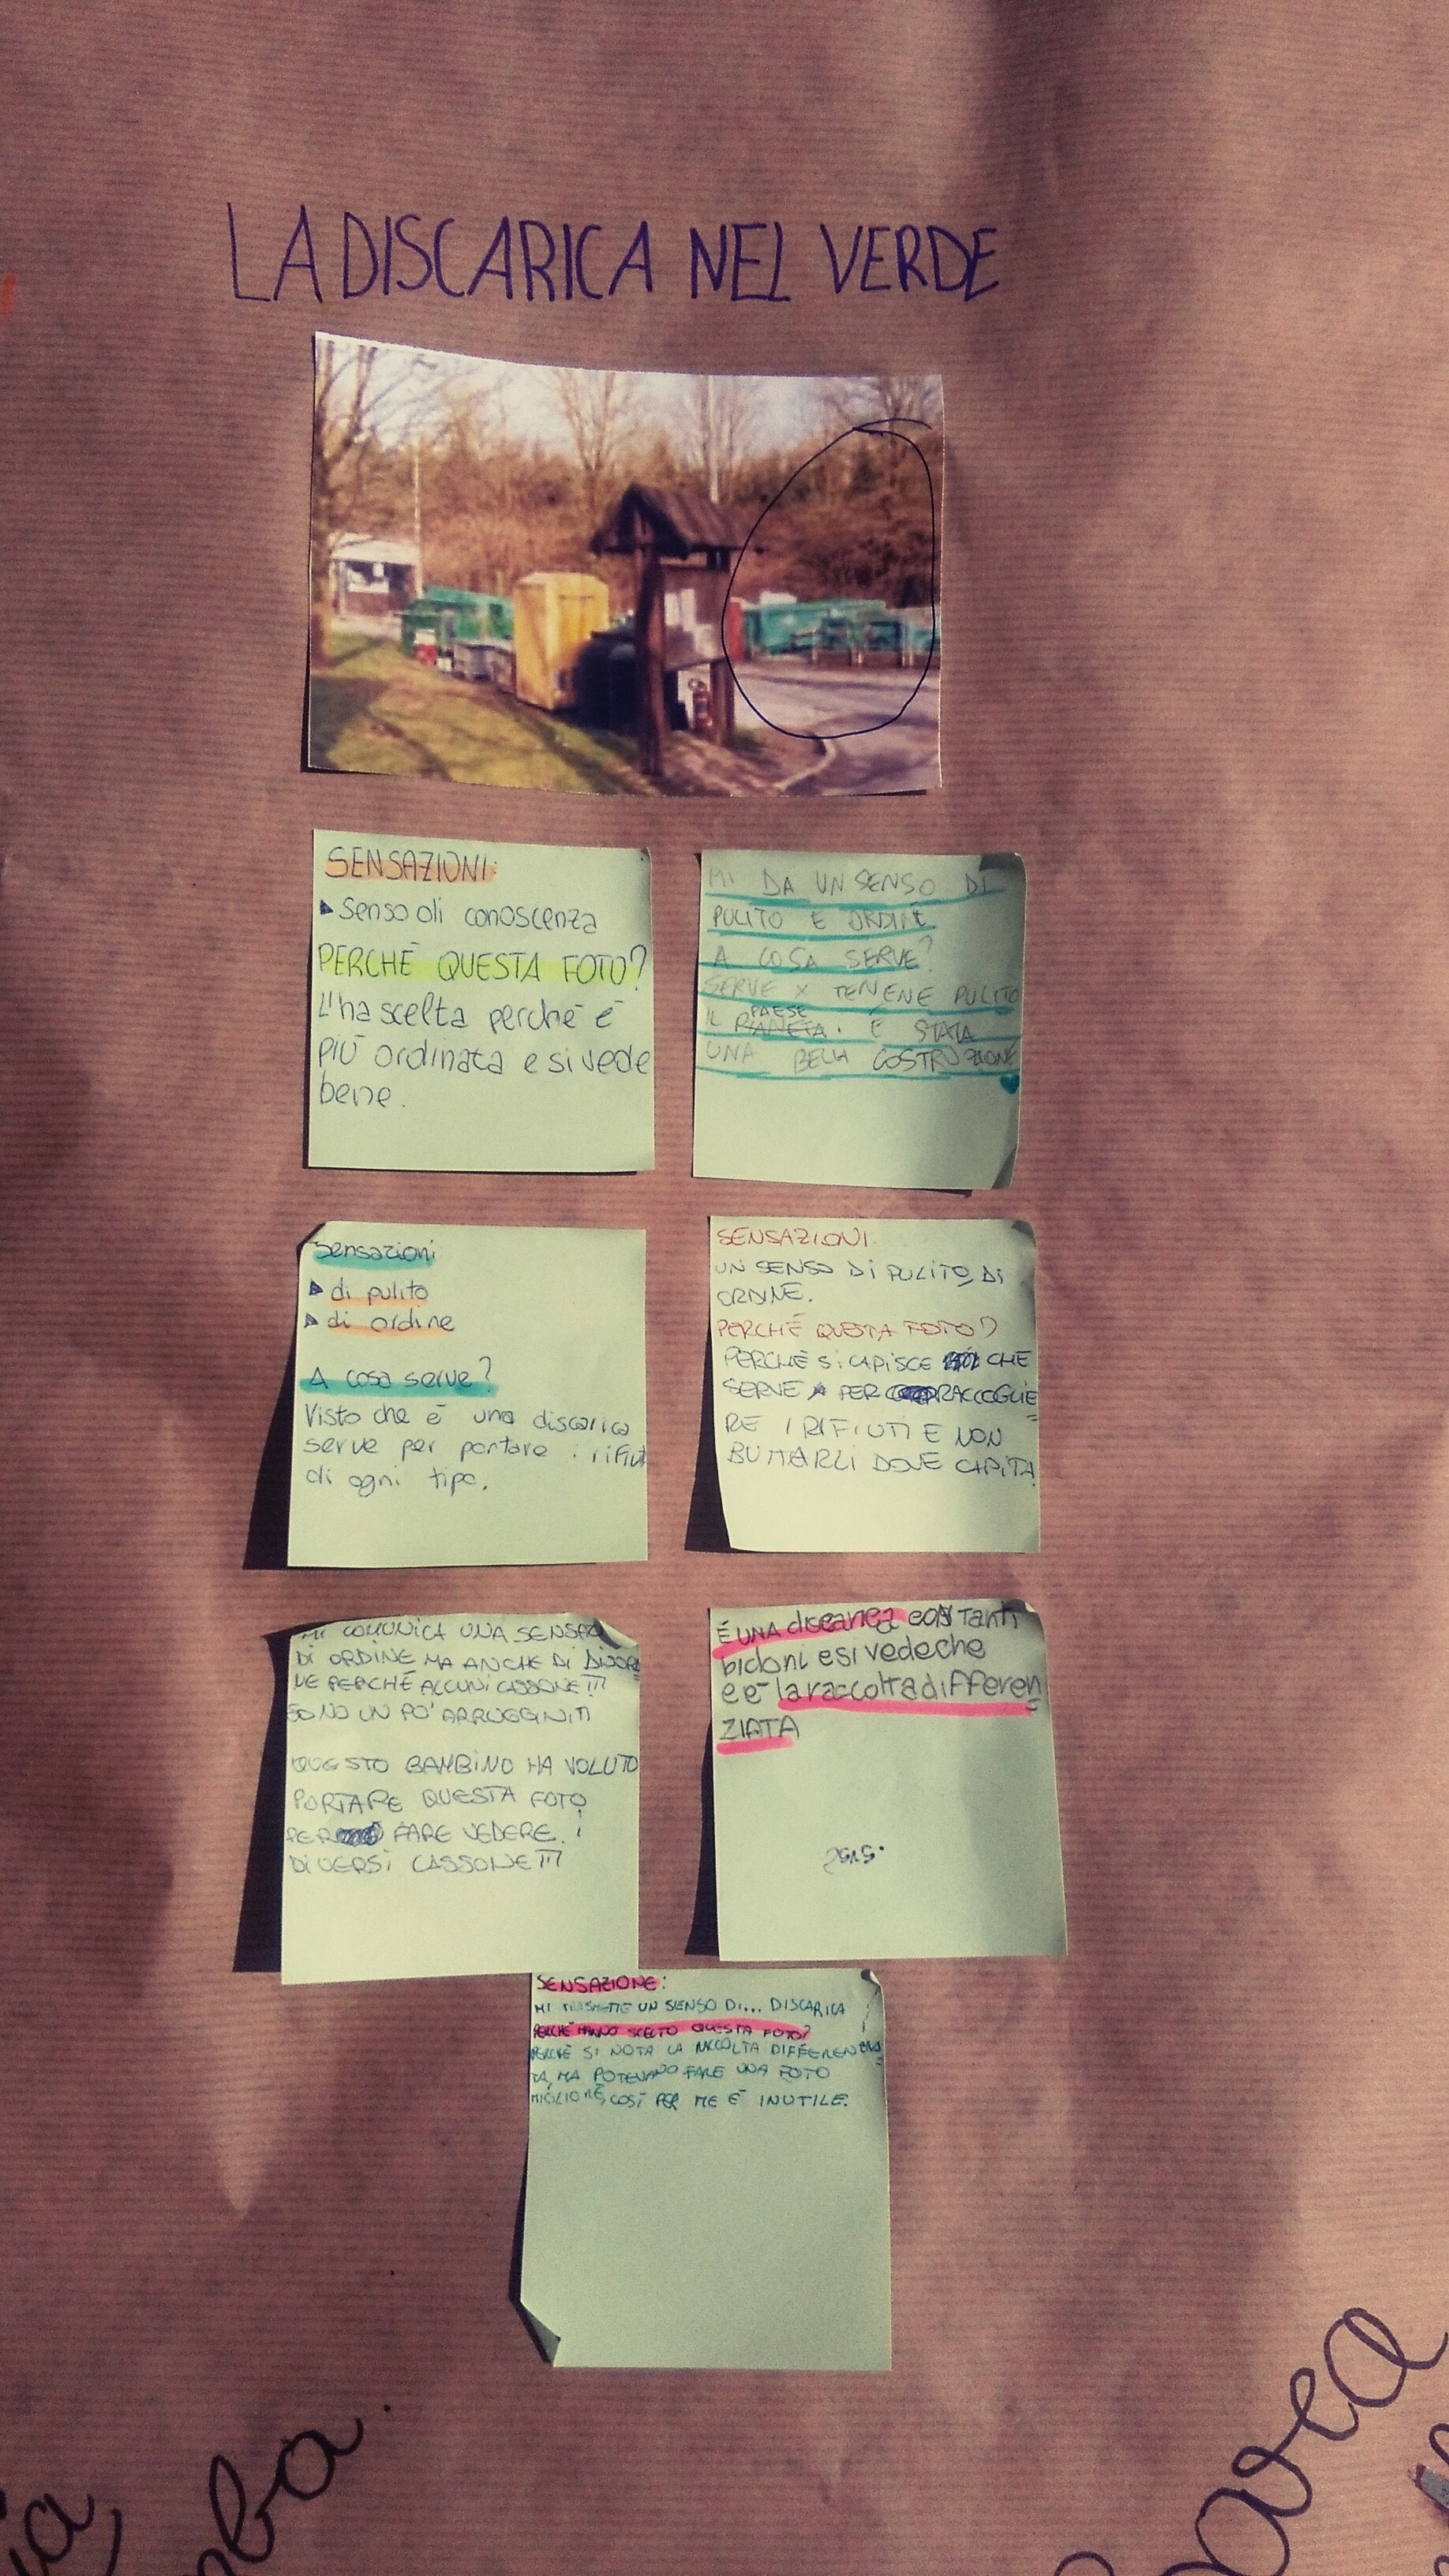 LA DISCARICA NEL VERDE
SENSAZIONI:
Senso di conoscenza
PERCHÉ QUESTA FOTO?
L'ha scelta perché è
PIÙ ordinata e si vede
bene.
MI DA UN SENSO DI
PULITO E ORDINE
A COSA SERVE?
SERVE X TENENE PULITO
PAESE
IL PIANETA. É STATA
UNA BELLA COSTRUZIONE
Sensazioni
di pulito
di ordine
A cosa serve?
Visto che è una discarica
serve per portare i rifiuti
di ogni tipo.
SENSAZIONI
UN SENSO DI PULITO, DI
ORDINE.
PERCHÉ QUESTA FOTO?
PERCHÉ SI CAPISCE CHE
SERVE PER RACCOGLIE
RE I RIFIUTI E NON
BUTTARLI DOVE CAPITA
MI COMUNICA UNA
DI ORDINE MA ANCHE DI DISORDI
NE PERCHÉ ALCUNI CASSONETTI
SONO UN PO' ARRUGGINITI
QUESTO BAMBINO HA VOLUTO
PORTARE QUESTA FOTO
PER FARE VEDERE I
DIVERSI CASSONETTI
É UNA discarica CON Tanti
bidoni e si vede che
c'è la raccolta differen
ZIATA
SENSAZIONE:
MI TRASMETTE UN SENSO DI... DISCARICA
PERCHÉ HANNO SCELTO QUESTA FOTO?
PERCHÉ SI NOTA LA RACCOLTA DIFFERENZIA
TA, MA POTEVANO FARE UNA FOTO
MIGLIORE, COSÌ PER ME É INUTILE.